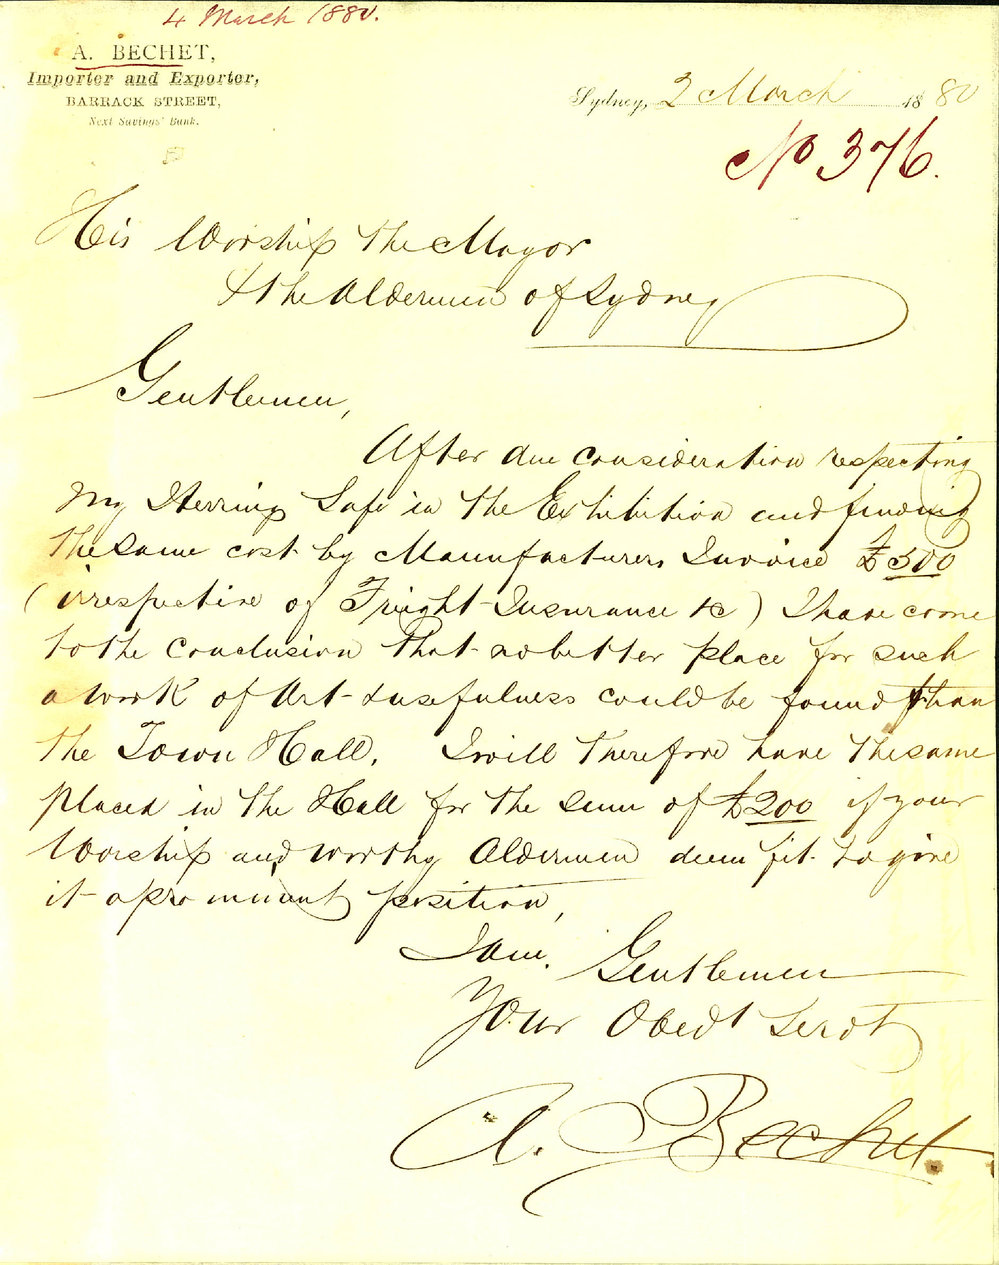 4 March 1880.
A. BECHET,
Importer and Exporter,
BARRACK STREET,
Next Savings' Bank.
Sydney, 2 March 1880
No 376.
His Worship the Mayor
& the Aldermen of Sydney
Gentlemen,
After due consideration respecting
my Herrings Safe in the Exhibition and finding
the same cost by Manufacturers Invoice £500
(irrespective of Freight Insurance &c) I have come
to the conclusion that no better place for such
a work of Art & usefulness could be found than
the Town Hall. I will therefore have the same
placed in the Hall for the sum of £200 if your
Worship and worthy Aldermen deem fit to give
it a prominent position,
I am. Gentlemen
Your Obedt Servt
A. Bechet.